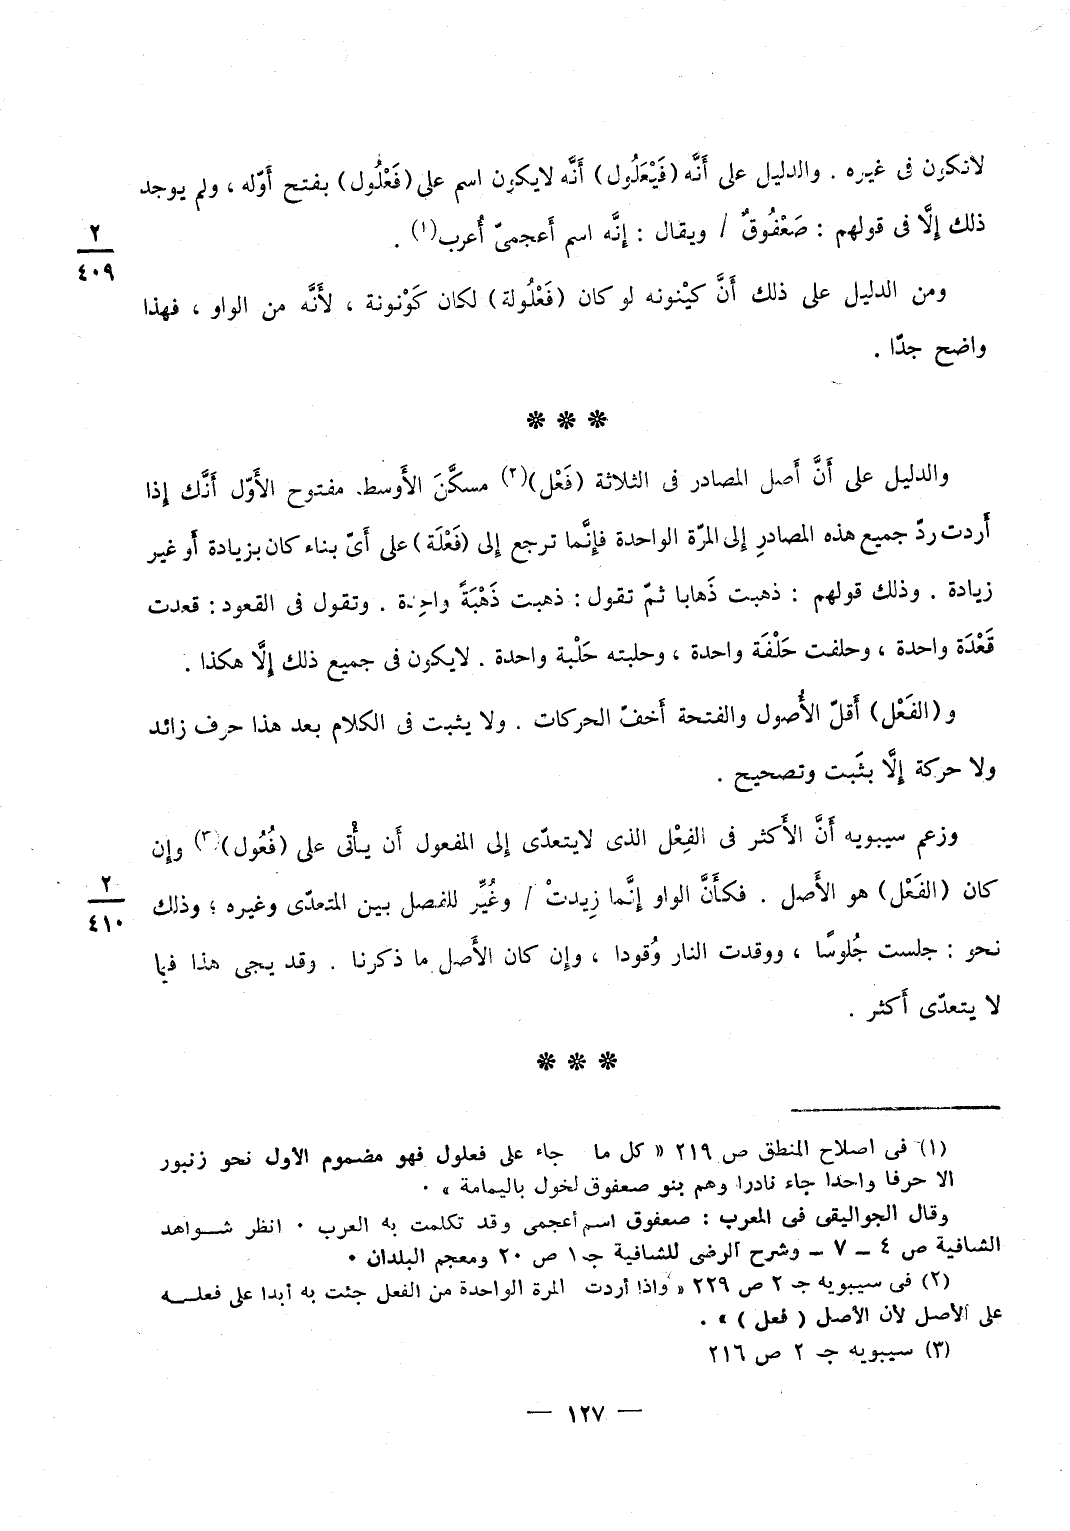 لاتكون فى غيره . والدليل على أَنَّه (فَيْعَلُول) أَنَّه لايكون اسم على (فَعْلُول) بفتح أوّله ، ولم يوجد
ذلك إِلَّا فى قولهم : صَعْفُوقٌ / ويقال : إِنَّه اسم أَعجمىّ أُعرب(١) .
٢
٤٠٩
ومن الدليل على ذلك أَنَّ كيْنونه لو كان (فَعْلُولة) لكان كَوْنونة ، لأَنَّه من الواو ، فهذا
واضح جدّا .
❊ ❊ ❊
والدليل على أَنَّ أَصل المصادر فى الثلاثة (فَعْل)(٢) مسكَّنَ الأَوسط. مفتوح الأَوّل أَنَّك إِذا
أَردت ردّ جميع هذه المصادرِ إِلى المرّة الواحدة فإِنَّما ترجع إِلى (فَعْلَة) على أَىّ بناء كان بزيادة أَو غير
زيادة . وذلك قولهم : ذهبت ذَهابا ثمّ تقول : ذهبت ذَهْبَةً واحدة . وتقول فى القعود : قعدت
قَعْدَة واحدة ، وحلفت حَلْفَة واحدة ، وحلبته حَلْبة واحدة . لايكون فى جميع ذلك إِلَّا هكذا .
و (الفَعْل) أَقلّ الأُصول والفتحة أَخفّ الحركات . ولا يثبت فى الكلام بعد هذا حرف زائد
ولا حركة إِلَّا بثَبت وتصحيح .
وزعم سيبويه أَنَّ الأَكثر فى الفِعْل الذى لايتعدّى إِلى المفعول أَن يأْتى على (فُعُول)(٣) وإِن
كان (الفَعْل) هو الأَصل . فكأَنَّ الواو إِنَّما زِيدتْ / وغُيِّر للفصل بين المتعدّى وغيره ؛ وذلك
٢
٤١٠
نحو : جلست جُلوسًا ، ووقدت النار وُقودا ، وإِن كان الأَصل ما ذكرنا . وقد يجى هذا فيا
لا يتعدّى أَكثر .
❊ ❊ ❊
(١) فى اصلاح المنطق ص ٢١٩ « كل ما جاء على فعلول فهو مضموم الأول نحو زنبور
الا حرفا واحدا جاء نادرا وهم بنو صعفوق لخول باليمامة » ٠
وقال الجواليقى فى المعرب : صعفوق اسم أعجمى وقد تكلمت به العرب ٠ انظر شـواهد
الشافية ص ٤ ــ ٧ ــ وشرح الرضى للشافية جـ ١ ص ٢٠ ومعجم البلدان ٠
(٢) فى سيبويه جـ ٢ ص ٢٢٩ « واذا أردت المرة الواحدة من الفعل جئت به أبدا على فعلـــه
على الأصل لأن الأصل ( فعل ) » .
(٣) سيبويه جـ ٢ ص ٢١٦
— ١٢٧ —